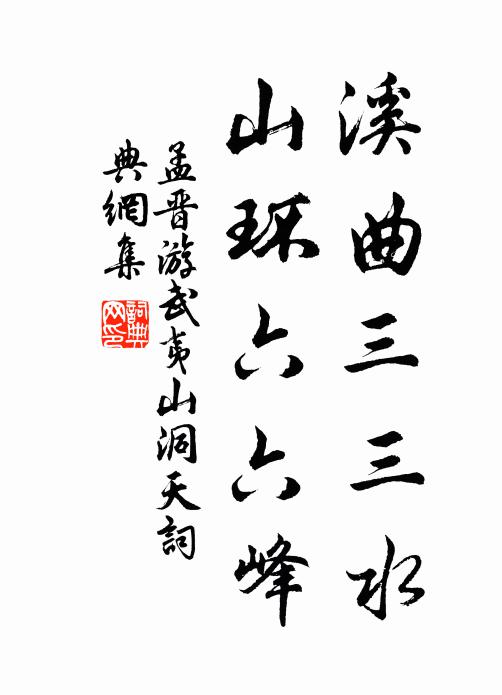 溪曲三三水
山环六六峰
孟晋游武夷山洞天詞
典網集
詞典
网印